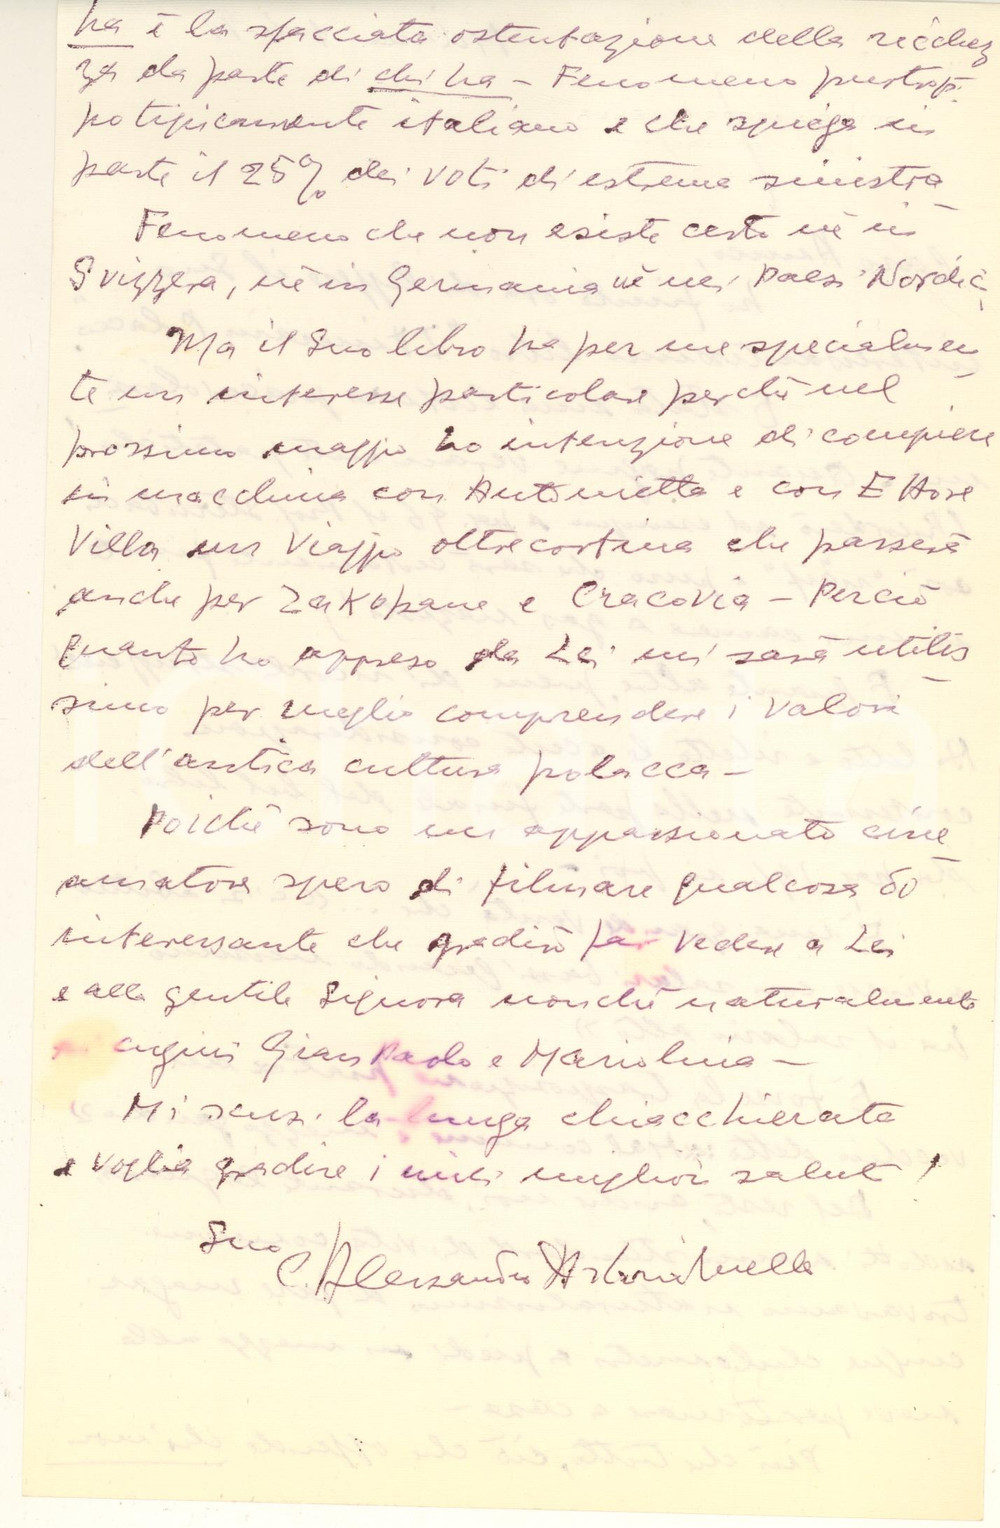 ha è la sfacciata ostentazione della ricchez
za da parte di chi ha - Fenomeno purtrop
po tipicamente italiano e che spiega in
parte il 25% dei voti di estrema sinistra
Fenomeno che non esiste certo nè in
Svizzera, nè in Germania nè nei Paesi Nordici
Ma il Suo libro ha per me specialmen
te un interesse particolare perchè nel
prossimo maggio ho intenzione di compiere
in macchina con Antonietta e con Ettore
Villa un viaggio oltrecortina che passerà
anche per Zakopane e Cracovia - Perciò
quanto ho appreso da Lei mi sarà utilis
simo per meglio comprendere i valori
dell'antica cultura polacca -
Poichè sono un appassionato cine
amatore spero di filmare qualcosa di
interessante che gradirò far vedere a Lei
e alla gentile Signora nonchè naturalmente
ai cugini Gian Paolo e Mariolina -
Mi scusi la lunga chiacchierata
e voglia gradire i miei migliori saluti!
Suo
C. Alessandro